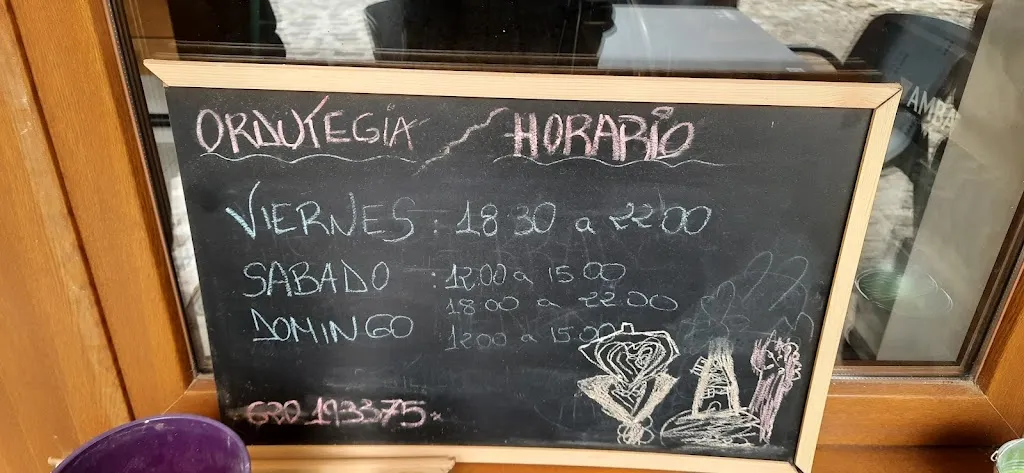 ORDUTEGIA / HORARIO
VIERNES : 18 30 a 22 00
SABADO : 12.00 a 15 00
18 00 a 22 00
DOMINGO 12.00 a 15.00
620 193375